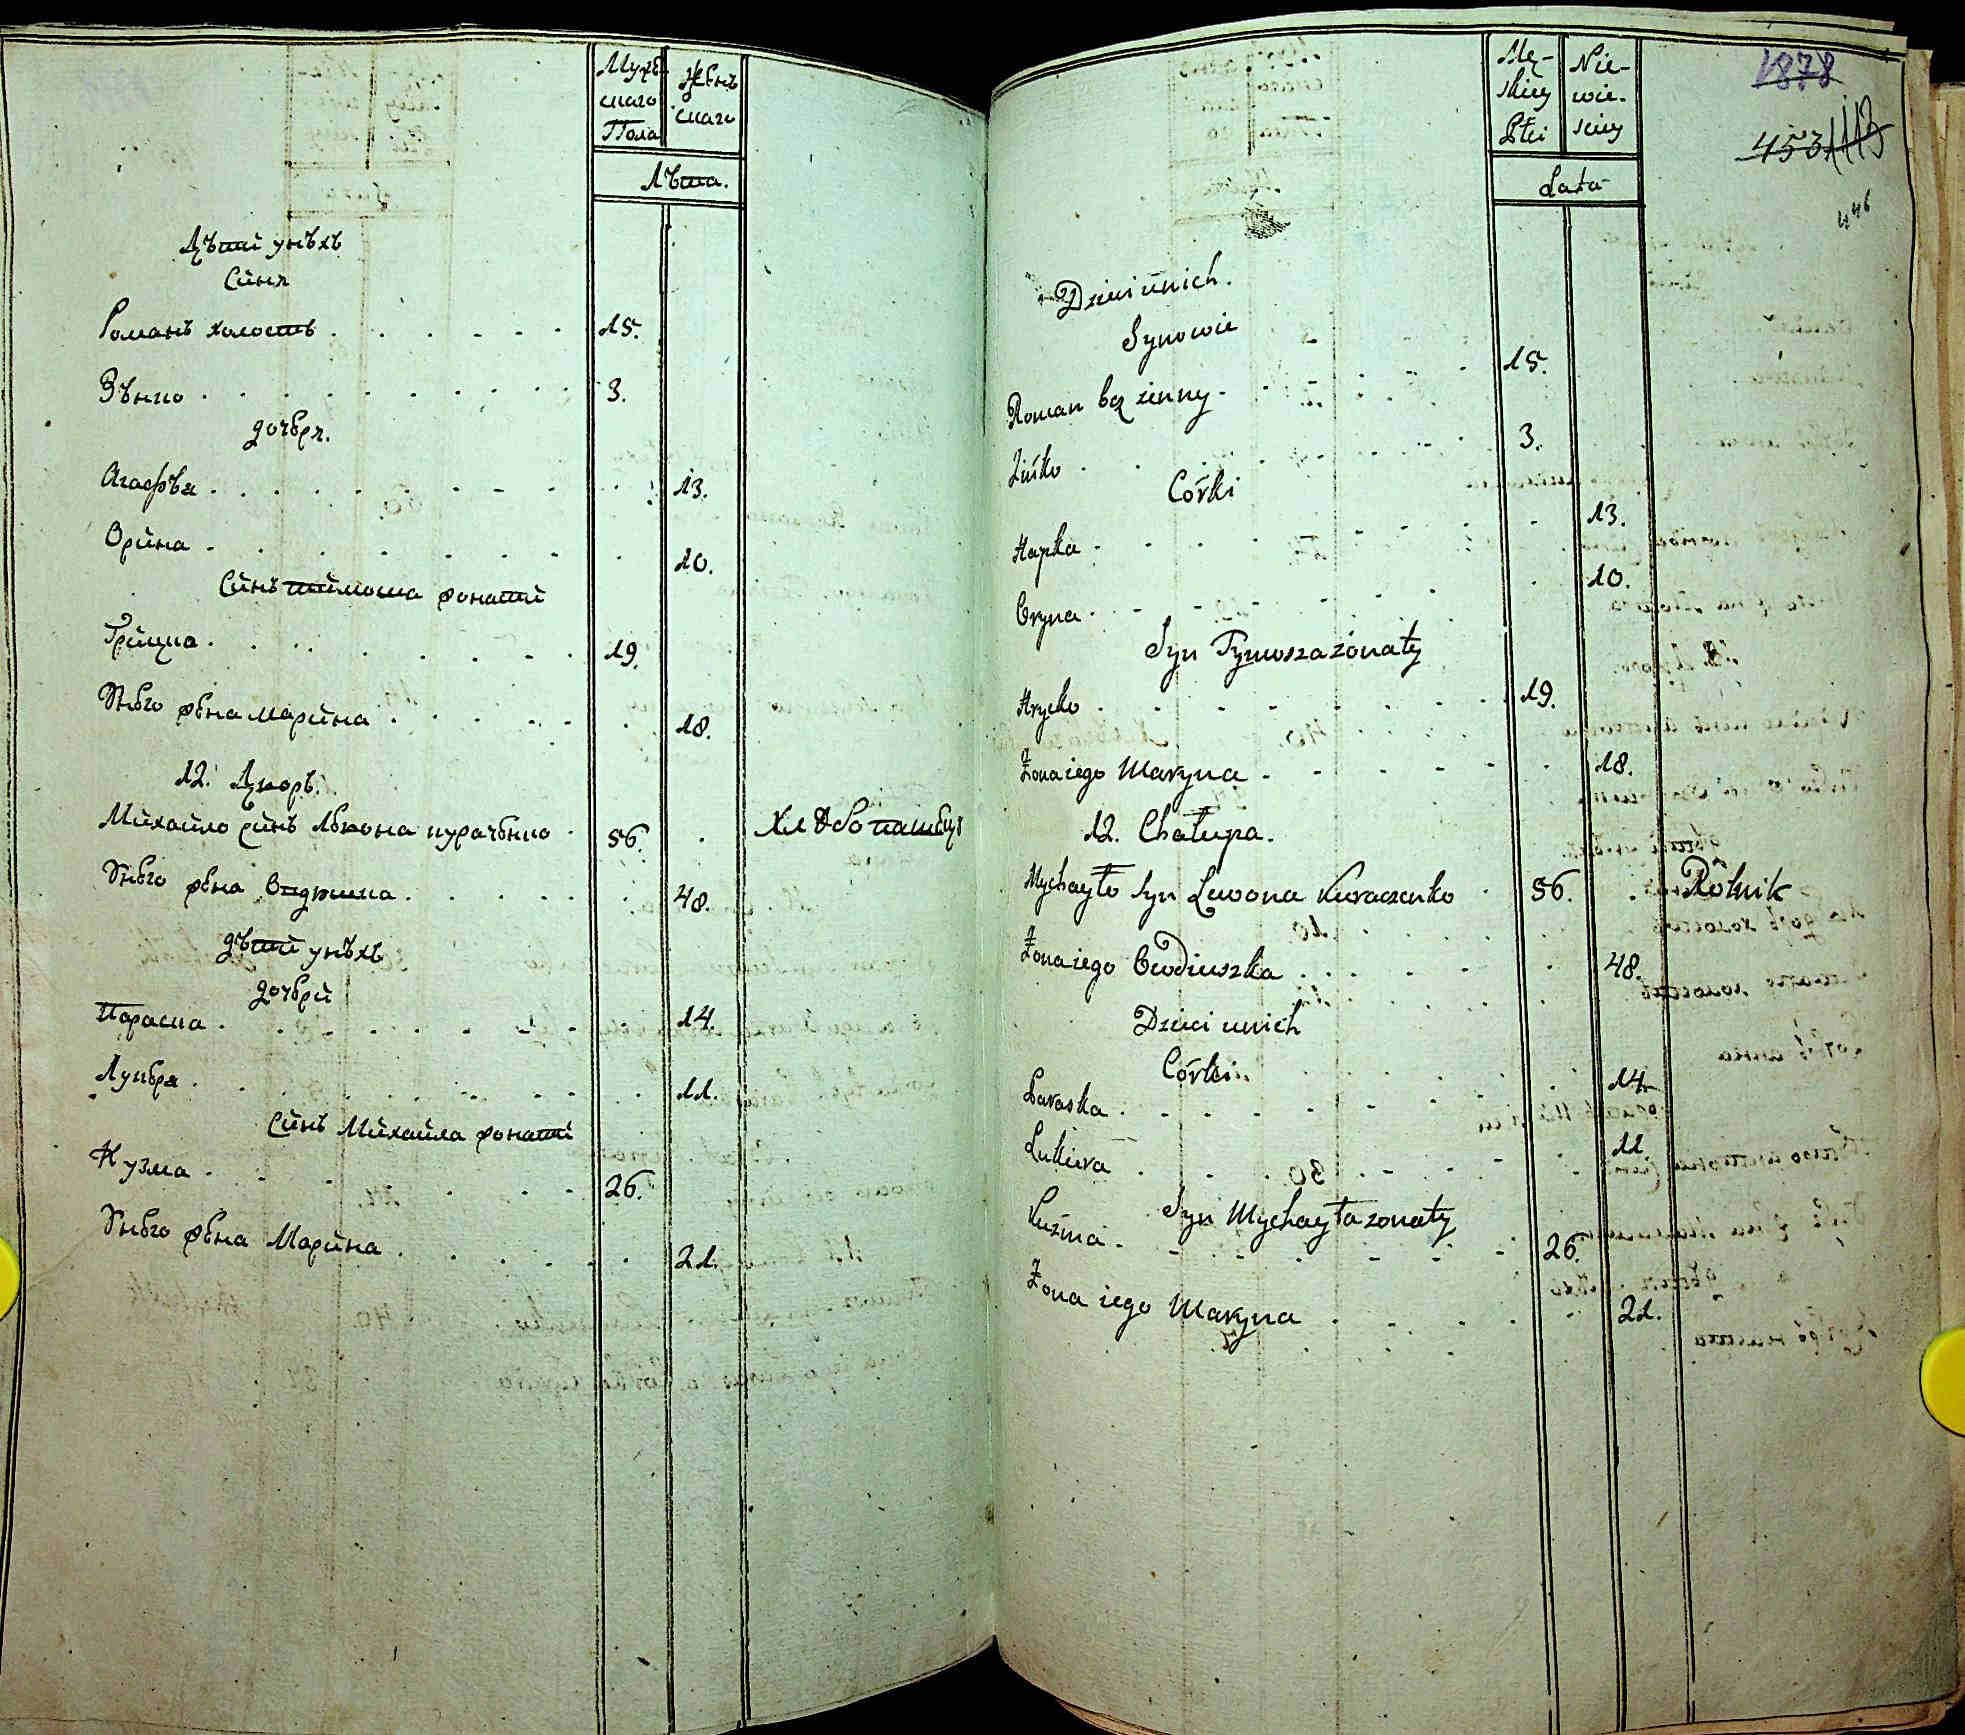 Мужескаго Пола
Женскаго
Лѣта.
Дѣти унѣхъ
Сіня
Романъ холостъ . . . . . . 15.
Зѣнко . . . . . . . . . 3.
дочеря.
Агафѣя . . . . . . . . . 13.
Орина . . . . . . . . 10.
Синъ тимоша жонатий
Грицка . . . . . . . . 19.
Унего жена марина . . . . . . 18.
12. Дворъ.
Михайло синъ Левона курачинко . 56. . Хлѣбопашецъ
Унего жена Видюшка . . . . . . 48.
дѣтий унѣхъ
дочерй
Параска . . . . . . . 14.
Лукеря . . . . . . . . . 11.
Синъ Михайла жонатий
Кузма . . . . . . . 26.
Унего жена Марина . . . . . . 21.
Męskiey Płci
Niewieściey
Lata
1878
453
446
Dzieci unich.
Synowie
Roman bez zenny . . . . . . 15.
Zińko . . . . . . . . 3.
Córki
Hapka . . . . . . . . 13.
Oryna . . . . . . . . 10.
Syn Tymosza żonaty
Hrycko . . . . . . . . 19.
Żona iego Maryna . . . . . . 18.
12. Chałupa.
Mychayło Syn Lewona Kuraczenko . 56. . Rolnik
Żona iego Owdiuszka . . . . . 48.
Dzieci unich
Córki.
Paraska . . . . . . . . 14.
Lukiera . . . . . . . . 11.
Syn Mychayła zonaty
Kuźma . . . . . . . 26.
Żona iego Maryna . . . . . 21.